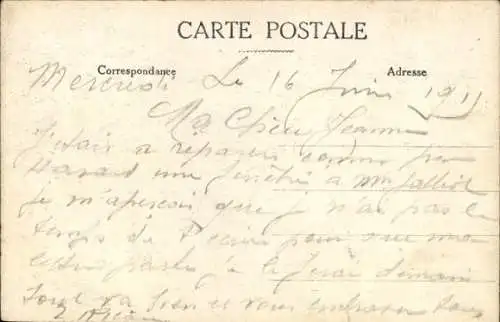 CARTE POSTALE
Correspondance Adresse
Mercredi Le 16 Juin 1911
Ma Chère Jeanne
J'étais a réparer comme par
hasard une fenêtre a Mme
je m'aperçois que je n'ai pas le
temps de pour que ma
parte je la ferai demain
tout va bien et vous embrasse tous